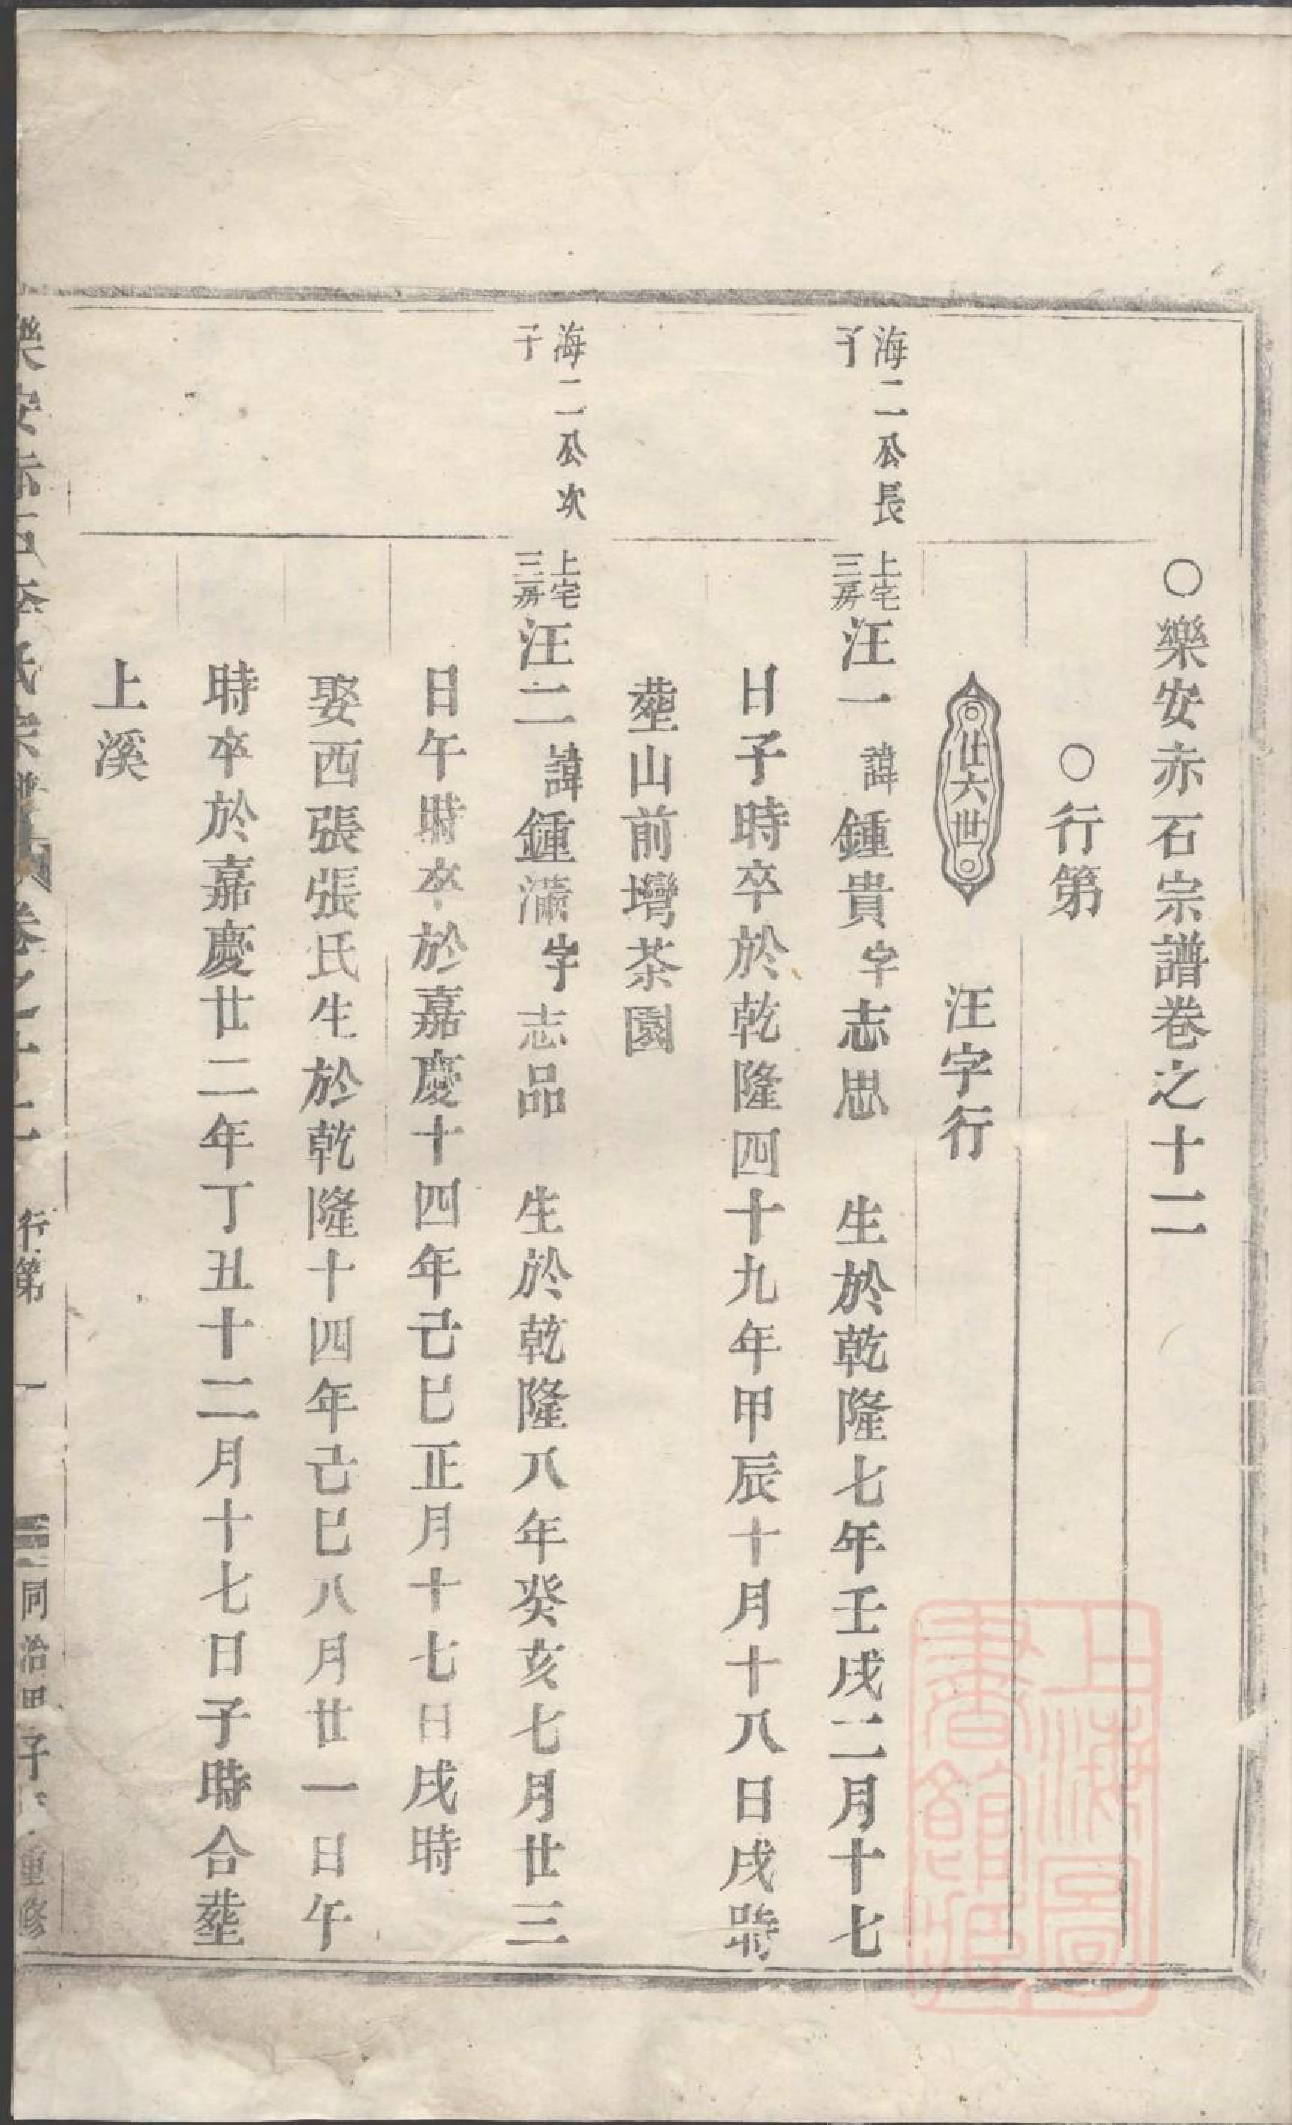 ○樂安赤石宗譜卷之十二
○行第
廿六世
汪字行
海二公長
子
上宅
三房
汪一 諱鍾貴字志思 生於乾隆七年壬戌二月十七
日子時卒於乾隆四十九年甲辰十月十八日戌時
塟山前塆茶園
海二公次
子
上宅
三房
汪二 諱鍾滿字志品 生於乾隆八年癸亥七月廿三
日午時卒於嘉慶十四年己巳正月十七日戌時
娶西張張氏生於乾隆十四年己巳八月廿一日午
時卒於嘉慶廿二年丁丑十二月十七日子時合塟
上溪
樂安赤石李氏宗譜 卷之十二 行第 一 同治甲子 重修
上海圖書館藏